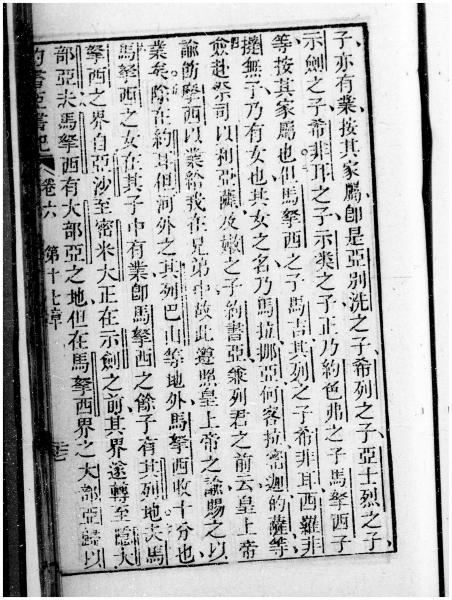 子亦有業按其家屬卽是亞別洗之子希列之子亞士烈之子
示劍之子希非耳之子示类之子正乃約色弗之子馬拏西子
等按其家屬也但馬拏西之子馬吉其列之子希非耳西羅非
㨿無子乃有女也其女之名乃馬拉挪亞何客拉密迦的薩等
僉赴祭司以利亞薩及嫩之子約書亞兼列君之前云皇上帝
諭飭摩西以業給我在兄弟中故此遵照皇上帝之諭賜之以
業矣除在約耳但河外之其列巴山等地外馬拏西收十分也
馬拏西之女在其子中有業卽馬拏西之餘子有其列地夫馬
拏西之界自亞沙至密米大正在示劍之前其界遂轉至隱大
部亞夫馬拏西有大部亞之地但在馬拏西界之大部亞歸以
約書亞書記 卷六 第十七章